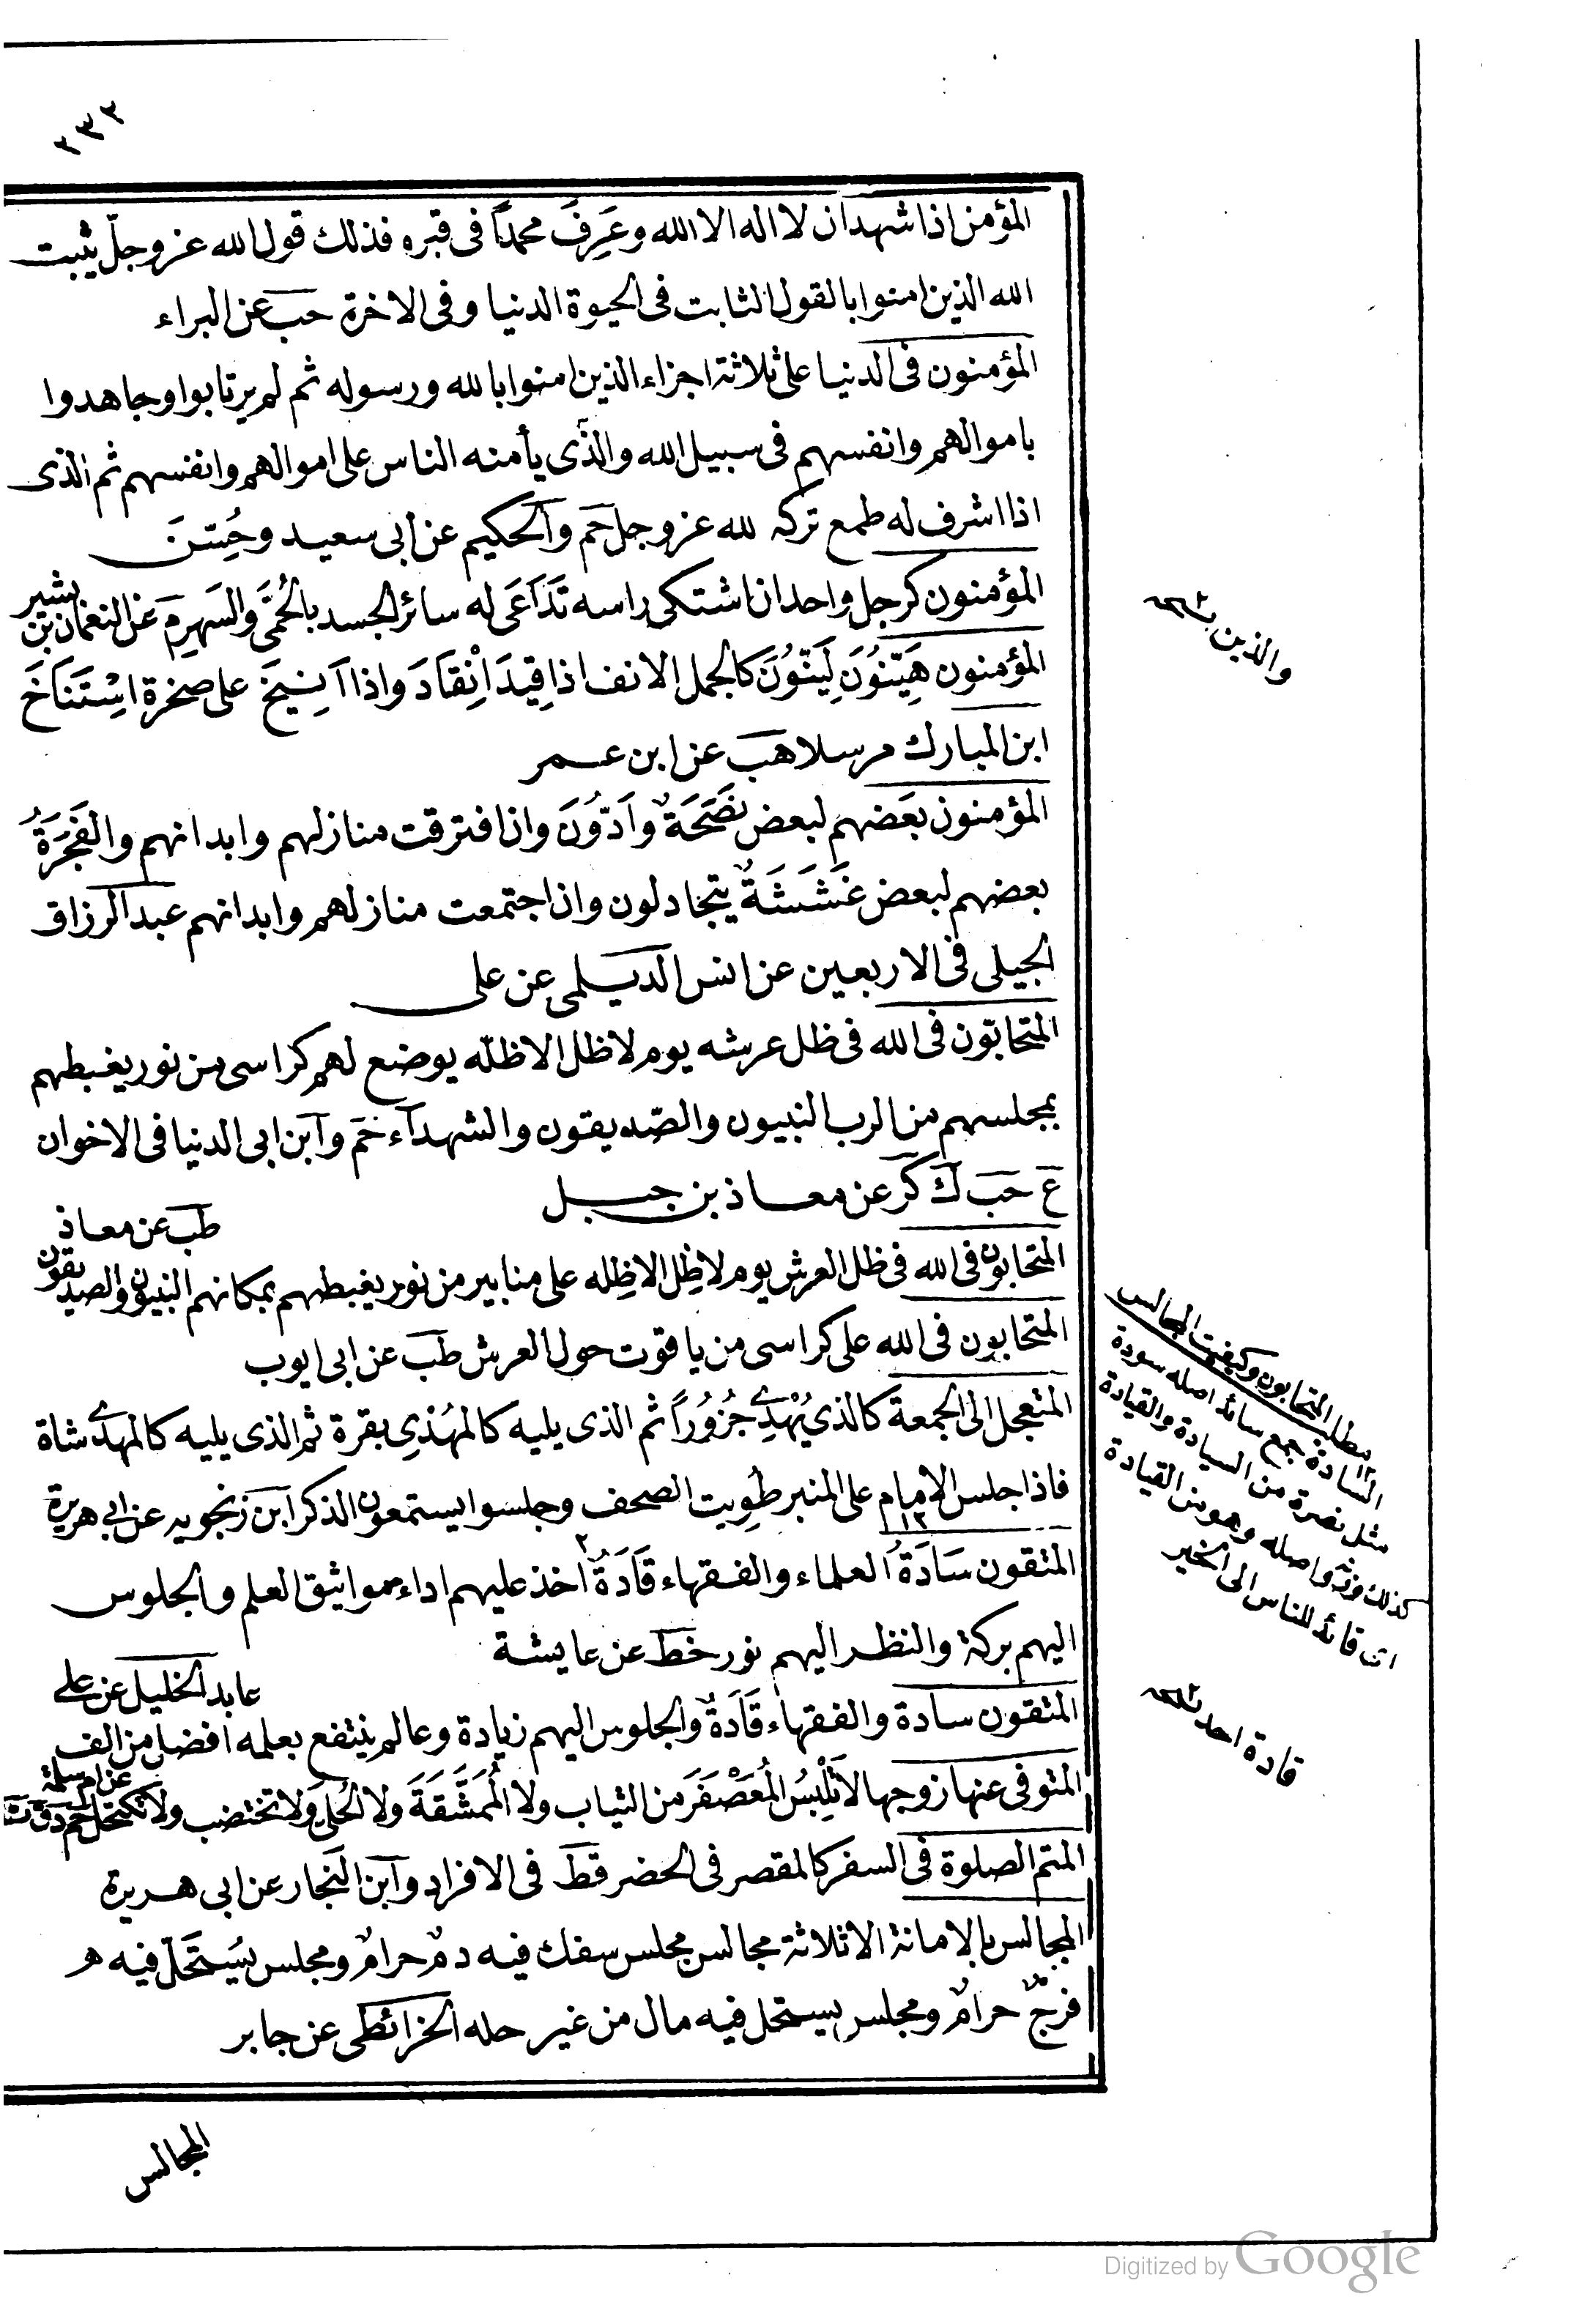 ٢٣٢
المؤمن اذا شهد ان لا اله الا الله وعَرِفَ محمداً فى قبره فذلك قول الله عز وجلّ يثبت
الله الذين امنوا بالقول الثابت فى الحيوة الدنيا وفى الاخرة حب عن البراء
المؤمنون فى الدنيا على ثلاثة اجزاء الذين امنوا بالله ورسوله ثم لم يرتابوا وجاهدوا
باموالهم وانفسهم فى سبيل الله والذى يأمنه الناس على اموالهم وانفسهم ثم الذى
اذا اشرف له طمع تركه لله عز وجل حم والحكيم عن ابى سعيد وحُسّن
المؤمنون كرجل واحد ان اشتكى راسه تَدَاعَى له سائر الجسد بالحُمَّى والسَهَرِ م عن النعمان بن بشير
المؤمنون هَيّنُوُنَ لَيّنُوُنَ كالجمل الانف اذا قِيدَ اِنْقَادَ واذا اُنِيخَ على صخرة اسْتَنَاخَ
ابن المبارك مرسلا هب عن ابن عمر
المؤمنون بَعَضهم لبعض نَصَحَةٌ وَادّوُنَ وان افترقت منازلهم وابدانهم والفَجَرَةُ
بعضهم لبعض غَشَشَةٌ يتخادلون وان اجتمعت منازلهم وابدانهم عبد الرزاق
الجيلى فى الاربعين عن انس الديلمى عن على
المتحابّون فى الله فى ظل عرشه يوم لا ظل الا ظلّه يوضع لهم كراسى من نور يغبطهم
بمجلسهم من الرب النبيون والصّديقون والشهداء حم وابن ابى الدنيا فى الاخوان
ع حب ك كر عن معاذ بن جبل
المتحابون فى الله فى ظل العرش يوم لا ظِل الا ظِله على منابر من نور يغبطهم بمكانهم النبيون والصديقون طب عن معاذ
المتحابون فى الله على كراسى من ياقوت حول العرش طب عن ابى ايوب
المتعجل الى الجمعة كالذى يُهْدِى جُزُوُراً ثم الذى يليه كالمهُدِى بقرة ثم الذى يليه كالمهدى شاة
فاذا جلس الامام على المنبر طُوِيت الصحف وجلسوا يستمعون الذكر ابن زنجويه عن ابى هريرة
المتقون سَادَةُ العلماء والفقهاء قَادَةٌ اخذ عليهم اداء مواثيق العلم والجلوس
اليهم بركة والنظر اليهم نور خط عن عايشة
المتقون سادة والفقهاء قَادَةٌ والجلوس اليهم زيادة وعالم ينتفع بعلمه افضل من الف عابد الخليل عن على
المتوفى عنها زوجها لا تَلْبِسُ المُعَصْفَرَ من الثياب ولا المُمَشَّقَةَ ولا الحُلِىَ ولا تختضب ولا تكتحل حم د ق ن عن ام سلمة
المتم الصلوة فى السفر كالمقصر فى الحضر قط فى الافراد وابن النجار عن ابى هريرة
المجالس بالامانة الا ثلاثة مجالس مجلس سفك فيه دمٌ حرامٌ ومجلس يُسْتَحَلّ فيه
فرجٌ حرامٌ ومجلس يستحل فيه مال من غير حله الخرائطى عن جابر
المجالس
والذين
مطلب المتحابون وكيفيت المجالس
السادة جمع سائد اصله سودة
مثل نصرة من السيادة والقيادة
كذلك وزنه واصله وهو من القيادة
اى قائد للناس الى الخير
قادة احد
Digitized by Google